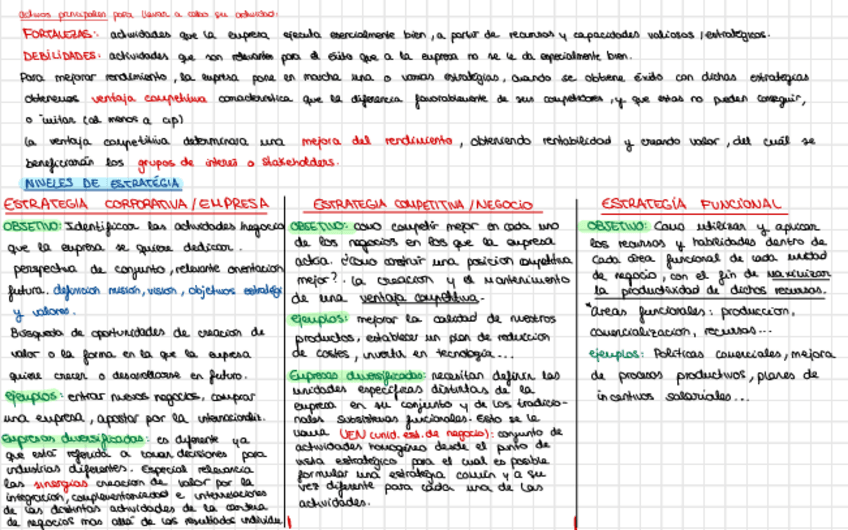 activos principales para llevar a cabo su actividad:
FORTALEZAS: actividades que la empresa ejecuta esencialmente bien, a partir de recursos y capacidades valiosos /estratégicos.
DEBILIDADES: actividades que son relevantes para el éxito que a la empresa no se le da especialmente bien.
Para mejorar rendimiento, la empresa pone en marcha una o varias estrategias, cuando se obtiene éxito con dichas estrategias
obtenemos ventaja competitiva característica que la diferencia favorablemente de sus competidores, y que estos no pueden conseguir,
o imitar (al menos a c/p)
La ventaja competitiva determinará una mejora del rendimiento, obteniendo rentabilidad y creando valor, del cuál se
beneficiarán los grupos de interés o stakeholders.
NIVELES DE ESTRATÉGIA
ESTRATEGIA CORPORATIVA/EMPRESA
OBJETIVO: Identificar las actividades negocio
que la empresa se quiere dedicar.
perspectiva de conjunto, relevante orientacion
futura. definicion misión, vision, objetivos estratég
y valores.
Busqueda de oportunidades de creacion de
valor o la forma en la que la empresa
quiere crecer o desarrollarse en futuro.
ejemplos: entrar nuevos negocios, comprar
una empresa, apostar por la
Empresas diversificadas: es diferente ya
que estar referida a tomar decisiones para
industrias diferentes. Especial relevancia
las sinergias creacion de valor por la
integración, complementariedad e interrelaciones
de las distintas actividades de la cartera
de negocios mas allá de los resultados individu
ESTRATEGIA COMPETITIVA/NEGOCIO
OBJETIVO: como competir mejor en cada uno
de los negocios en los que la empresa
actúa. ¿Cómo construir una posicion competitiva
mejor?. La creacion y el mantenimiento
de una ventaja competitiva.
ejemplos: mejorar la calidad de nuestros
productos, establecer un plan de reduccion
de costes, invertir en tecnología...
Empresas diversificadas: necesitan definir las
unidades especificas distintas de la
empresa en su conjunto y de los tradicio-
nales subsistemas funcionales. Esto se le
llama UEN (unid. est. de negocio): conjunto de
actividades homogéneo desde el punto de
vista estratégico para el cual es posible
formular una estrategia común y a su
vez diferente para cada una de las
actividades.
ESTRATEGÍA FUNCIONAL
OBJETIVO: Como utilizar y aplicar
los recursos y habilidades dentro de
cada área funcional de cada unidad
de negocio, con el fin de maximizar
la productividad de dichos recursos.
*áreas funcionales: produccion,
comercializacion, recursos...
ejemplos: Politicas comerciales, mejora
de procesos productivos, planes de
incentivos salariales...